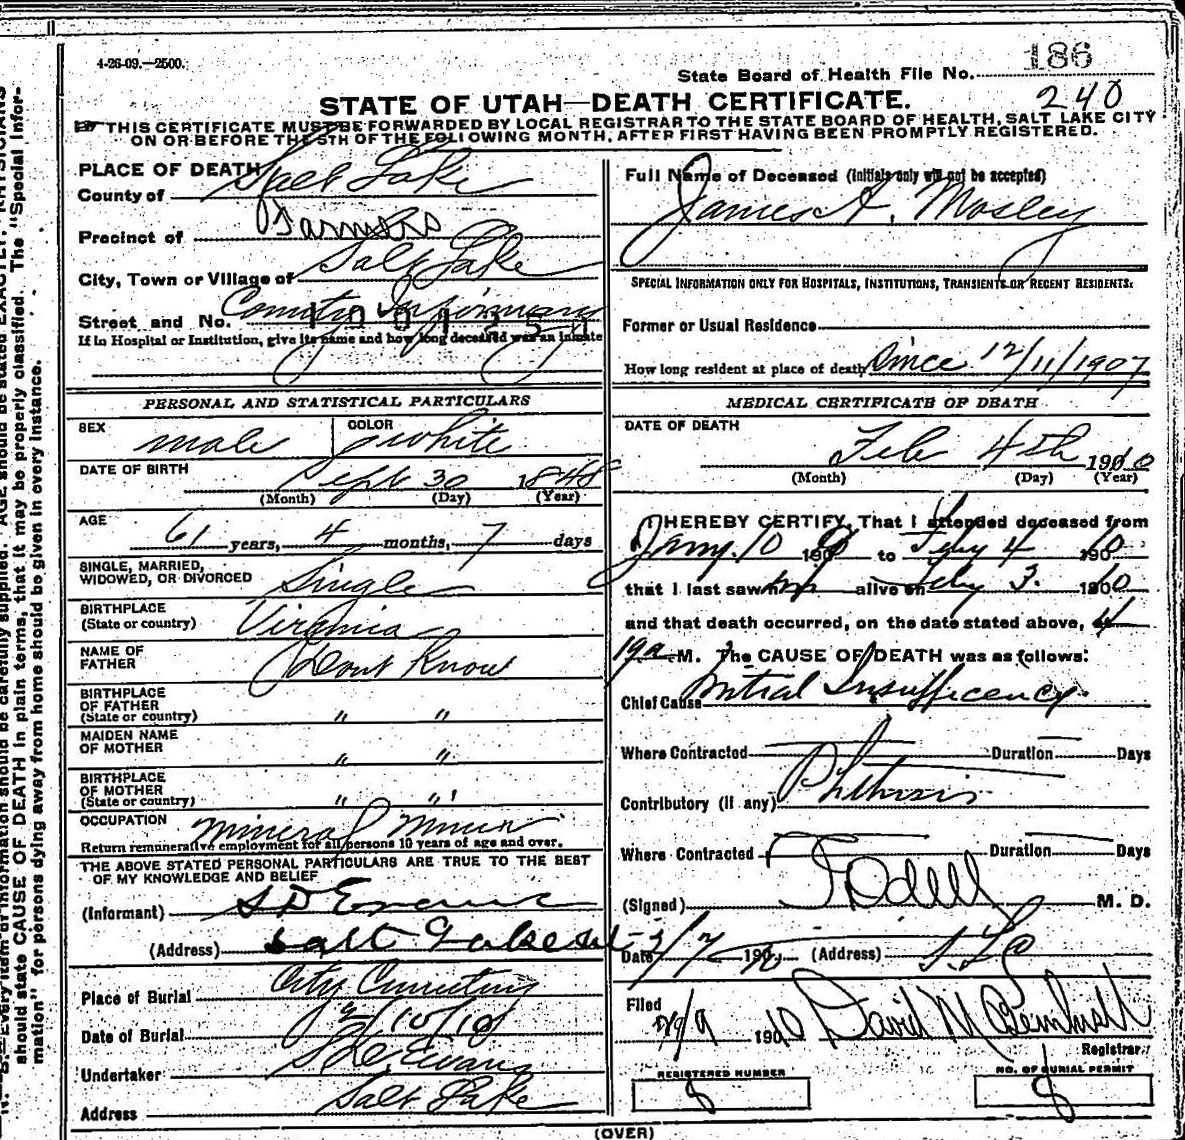 4-26-09.—2500.
State Board of Health File No. 186
240
STATE OF UTAH—DEATH CERTIFICATE.
THIS CERTIFICATE MUST BE FORWARDED BY LOCAL REGISTRAR TO THE STATE BOARD OF HEALTH, SALT LAKE CITY
ON OR BEFORE THE 5TH OF THE FOLLOWING MONTH, AFTER FIRST HAVING BEEN PROMPTLY REGISTERED.
PLACE OF DEATH
County of Salt Lake
Precinct of Farmers
City, Town or Village of Salt Lake
Street and No. County Infirmary
If in Hospital or Institution, give its name and how long deceased was an inmate
Full Name of Deceased (Initials only will not be accepted)
James A. Mosley
SPECIAL INFORMATION ONLY FOR HOSPITALS, INSTITUTIONS, TRANSIENTS OR RECENT RESIDENTS:
Former or Usual Residence
How long resident at place of death Since 12/11/1907
PERSONAL AND STATISTICAL PARTICULARS
SEX male COLOR white
DATE OF BIRTH Sept 30 1848
(Month) (Day) (Year)
AGE 61 years, 4 months, 7 days
SINGLE, MARRIED,
WIDOWED, OR DIVORCED Single
BIRTHPLACE
(State or country) Virginia
NAME OF
FATHER Dont Know
BIRTHPLACE
OF FATHER
(State or country) " "
MAIDEN NAME
OF MOTHER " "
BIRTHPLACE
OF MOTHER
(State or country) " "
OCCUPATION Mineral Miner
Return remunerative employment for all persons 10 years of age and over.
THE ABOVE STATED PERSONAL PARTICULARS ARE TRUE TO THE BEST
OF MY KNOWLEDGE AND BELIEF
(Informant) S D Evans
(Address) Salt Lake
Place of Burial City Cemetery
Date of Burial 2/10/10
Undertaker S D Evans
Address Salt Lake
MEDICAL CERTIFICATE OF DEATH
DATE OF DEATH
Feb 4th 1910
(Month) (Day) (Year)
I HEREBY CERTIFY, That I attended deceased from
Jany. 10 190 to Feby 4 1910
that I last saw him alive on Feby 3. 1910
and that death occurred, on the date stated above, 4
M. The CAUSE OF DEATH was as follows:
Chief Cause Mitral Insufficency
Where Contracted Duration Days
Contributory (if any) Phthisis
Where Contracted Duration Days
(Signed) M. D.
Date 2/7 1910 (Address) S. L.
Filed 2/9 1910 David M
Registrar
REGISTERED NUMBER
8
NO. OF BURIAL PERMIT
8
(OVER)
should state CAUSE OF DEATH in plain terms, that it may be properly classified. The "Special Infor-
mation" for persons dying away from home should be given in every instance.